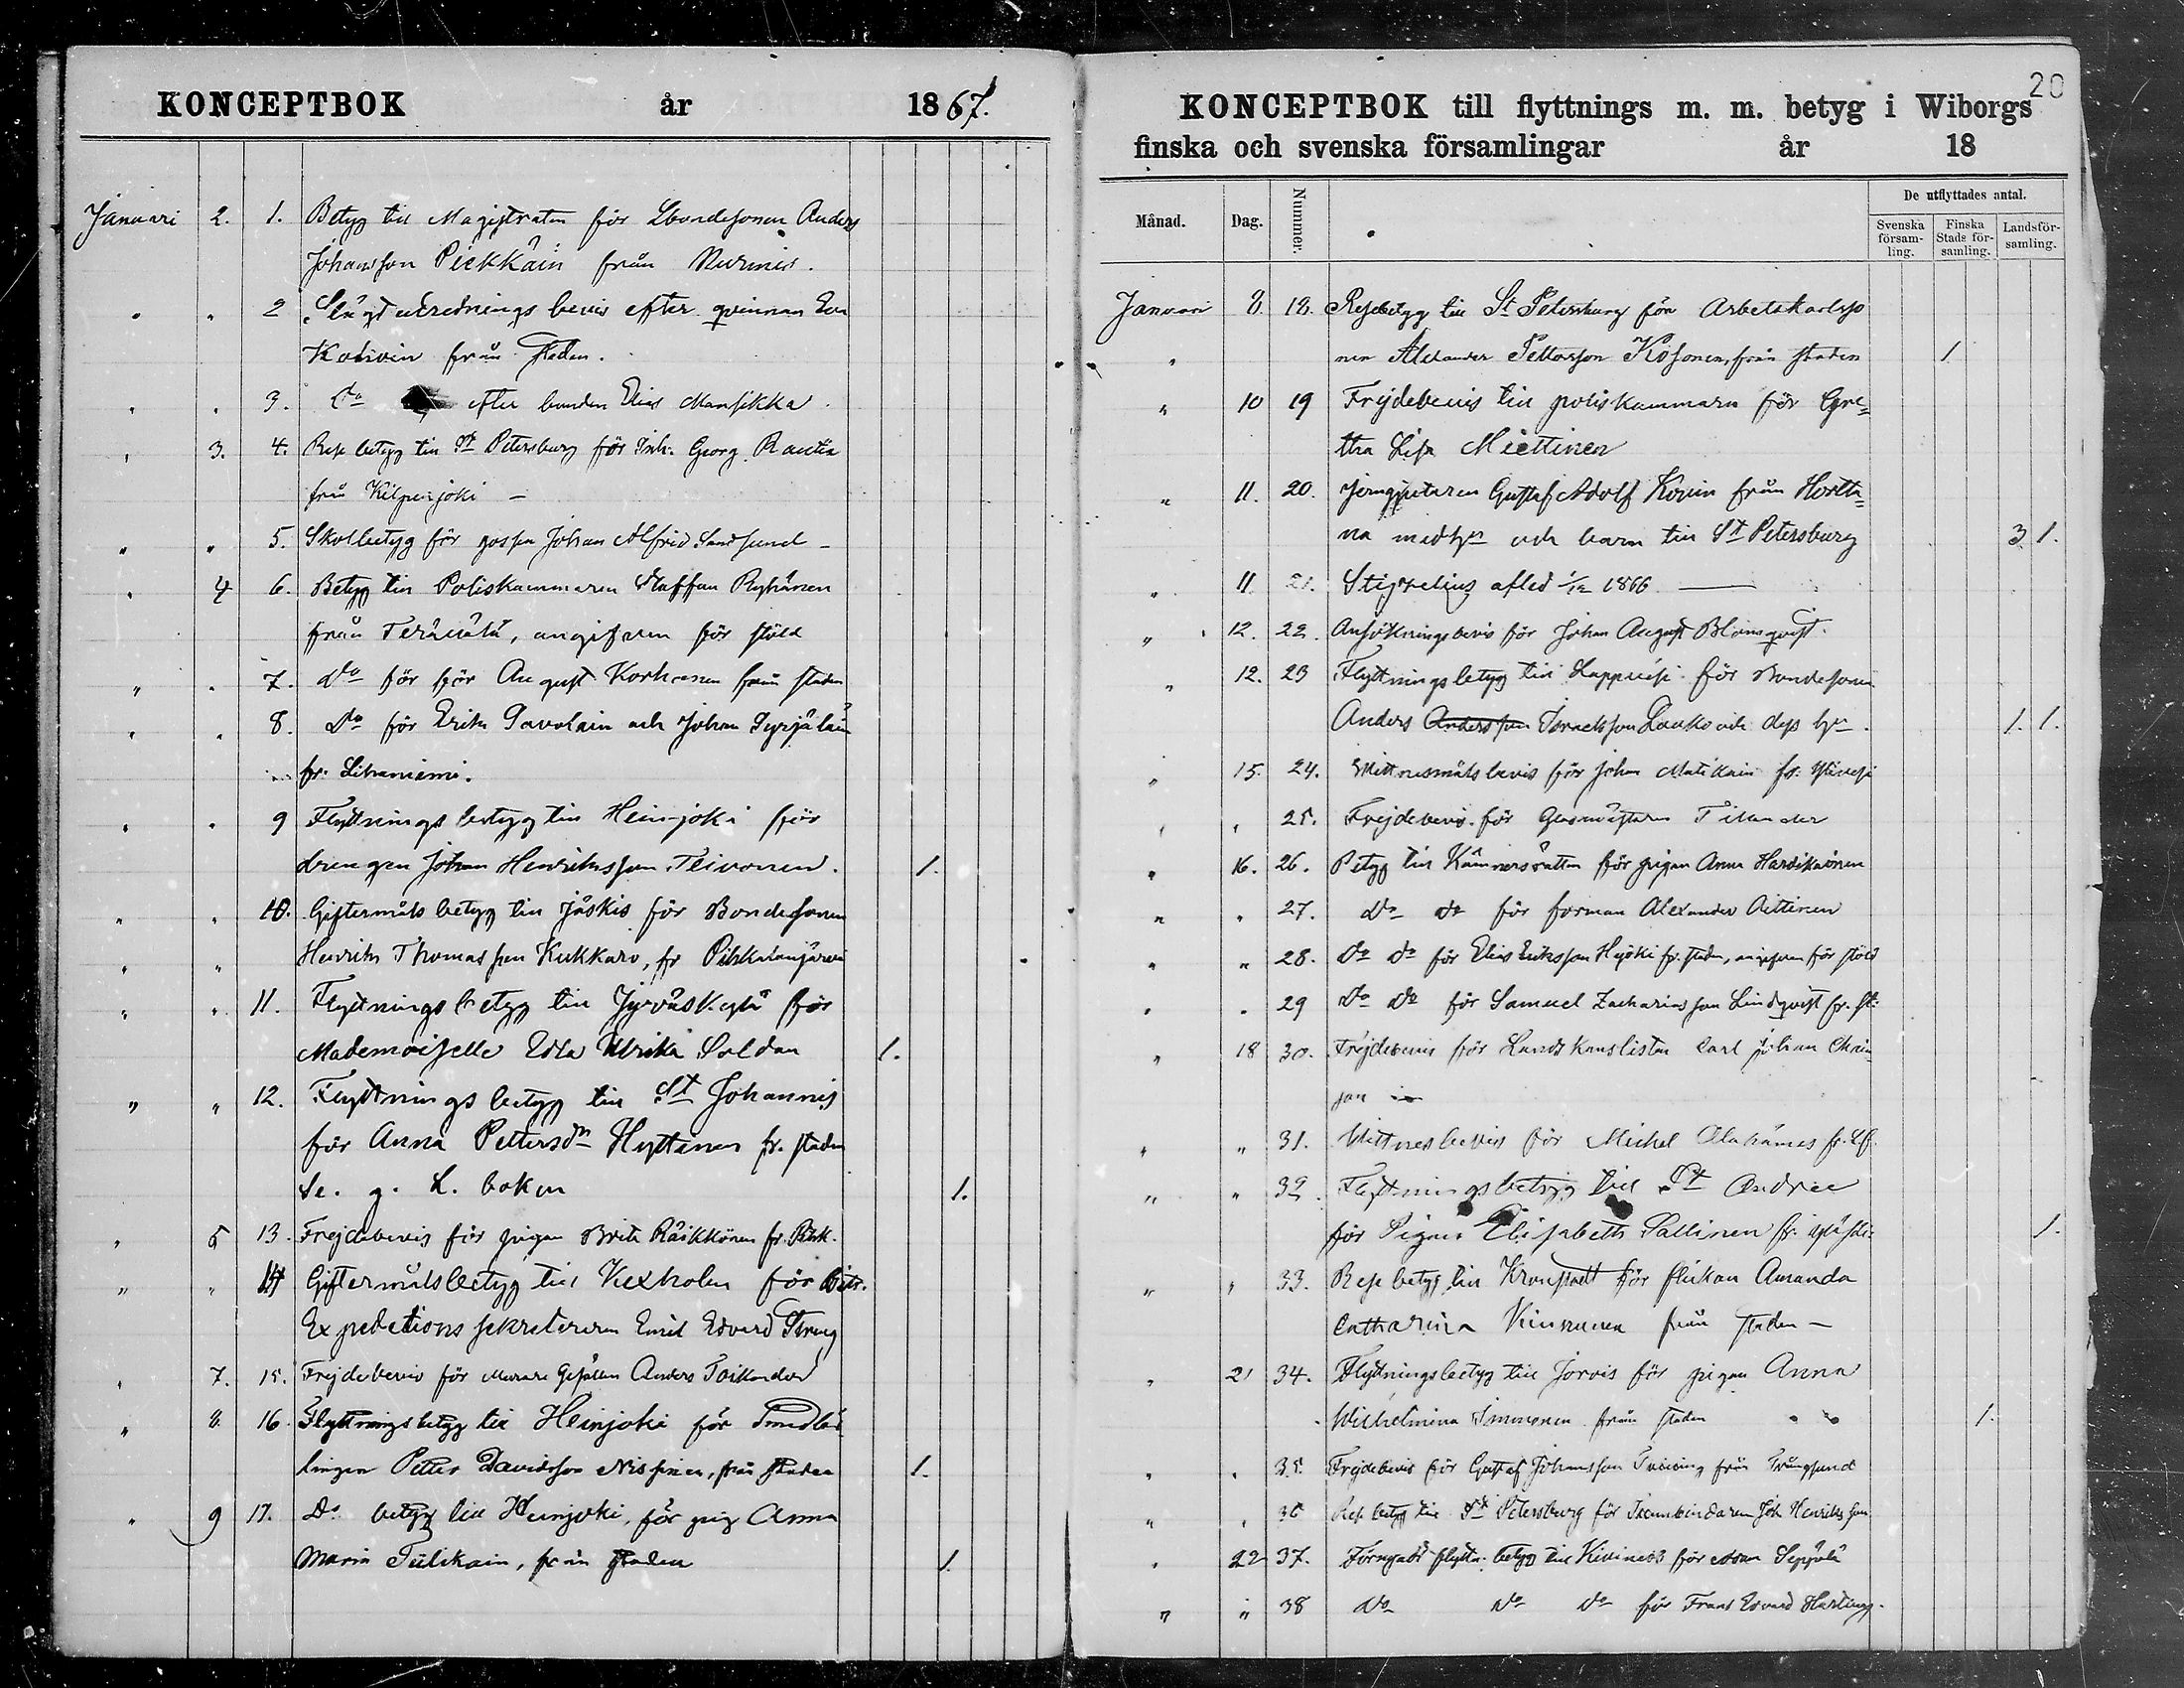 KONCEPTBOK år 1867.
Januari 2. 1. Betyg till Magistraten för Bondesonen Anders
Johansson Pickkäin från Nurmis.
" " 2 Slägtutrednings bevis efter qvinnan Eva
från staden.
" " 3. do efter bonden Elias Mansikka.
" 3. 4. Rese betyg till St Petersburg för Inh. Georg Rautia
från Kilpenjoki –
" " 5. Skolbetyg för gossen Johan Alfrid Sandsund –
" 4 6. Betyg till Poliskammaren Staffan Ryhänen
från Terävälä, angifven för stöld
" " 7. do för för August Korhonen från staden
" " 8. do för Erik Pavolain och Johan Syrjäläin
fr. Lihaniemi.
" " 9 Flyttnings betyg till Heinjoki för
drengen Johan Henriksson Teivonen. 1.
" " 10. Giftermåls betyg till Jäskis för Bondesonen
" " Henrik Thomasson Kukkaro, fr Pihkalanjärvi
" " 11. Flyttnings betyg till Jyväskylä för
Mademoiselle Edla Ulrika Soldan 1.
" " 12. Flyttnings betyg till St Johannis
för Anna Pettersdr Hyttinen fr. staden
Se. g. L. boken 1.
" 5 13. Frejdebevis för pigan Brita Räikkönen fr.
" " 14 Giftermålsbetyg till Kexholm för
Expeditions sekreteraren Emil Edvard
" 7. 15. Frejdebevis för Murare Gesällen Anders Toikander
" 8 16. Flyttningsbetyg till Heinjoki för
lingen Petter Davidsson Nissinen, från staden 1.
" 9 17. Do betyg till Heinjoki, för pig Anna
Maria Tülikain, från staden 1.
20
KONCEPTBOK till flyttnings m. m. betyg i Wiborgs
finska och svenska församlingar år 18
Månad. Dag. Nummer. De utflyttades antal.
Svenska försam-ling. Finska Stads för-samling. Landsför-samling.
Januari 8. 18. Resebetyg till St Petersburg för Arbetskarlsso
" nen Alexander Pettersson Kosonen, från staden 1
" 10 19 Frejdebevis till poliskammarn för Gre=
tha Lisa Miettinen
" 11. 20. Jerngjutaren Gustaf Adolf Kovin från Hortta=
na med hu och barn till St Petersburg 3 1.
" 11 21. afled 1/12 1866 —
" 12. 22. Ansökningsbevis för Johan August Blomqvist.
" 12. 23 Flyttningsbetyg till Lappvesi för Bondesonen
Anders Andersson Israelsson Lauko och dess hu. 1. 1.
" 15. 24. Wittnesmåls bevis för Johan Matikain fr.
" " 25. Frejdebevis för Glasmästaren Tikander
" 16. 26. Betyg till Kämnersrätten för pigan Anna
" " 27. do do för forman Alexander Aittinen
" " 28. do do för Elias Eriksson Hyöki fr. staden, angifven för stöld
" " 29 do do för Samuel Zachariasson Lindqvist fr. st:
" 18 30. Frejdebevis för Landskanslisten Carl Johan
" " 31. Wittnesbevis för Michel
" " 32. Flyttningsbetyg till St Andree
för Pigan Elisabeth Sallinen fr. 1.
" " 33. Rese betyg till Kronstadt för flickan Amanda
Catharina Kinnunen från staden –
" 21 34. Flyttningsbetyg till Jorois för pigan Anna
Wilhelmina Immonen från staden 1.
" " 35. Frejdebevis för Gustaf Johansson från Trångsund
" " 36 Rese betyg till St Petersburg för Joh Henriksson
" 22 37. Förnyadt flyttn. betyg till Kivineb för Seppälä
" " 38 do do do för Frans Edvard